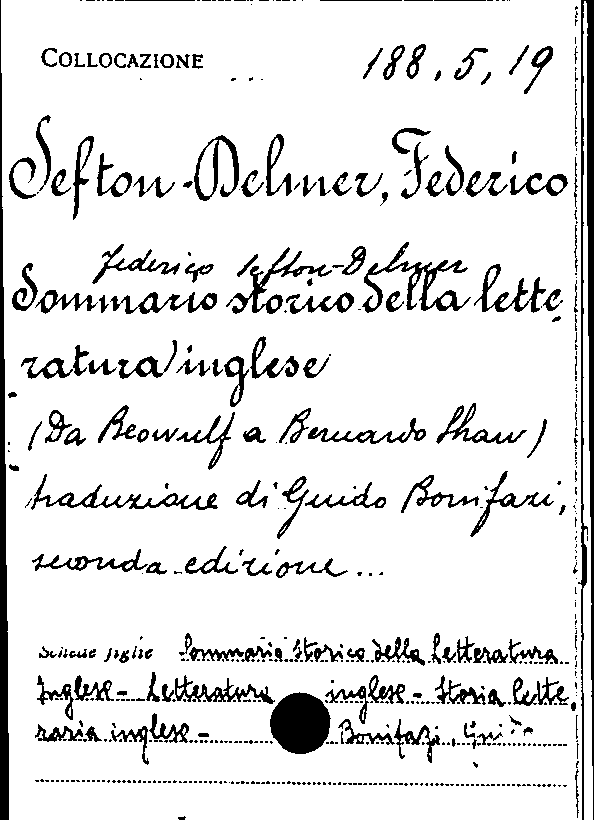 COLLOCAZIONE 188.5,19
Sefton-Delmer, Federico
Federico Sefton-Delmer
Sommario storico della lette
ratura inglese
(Da Beowulf a Bernardo Shaw)
traduzione di Guido Bonifazi,
seconda edizione...
Schede figlie Sommario storico della Letteratura
Inglese - Letteratura inglese - Storia lette,
raria inglese - Bonifazi, Guido